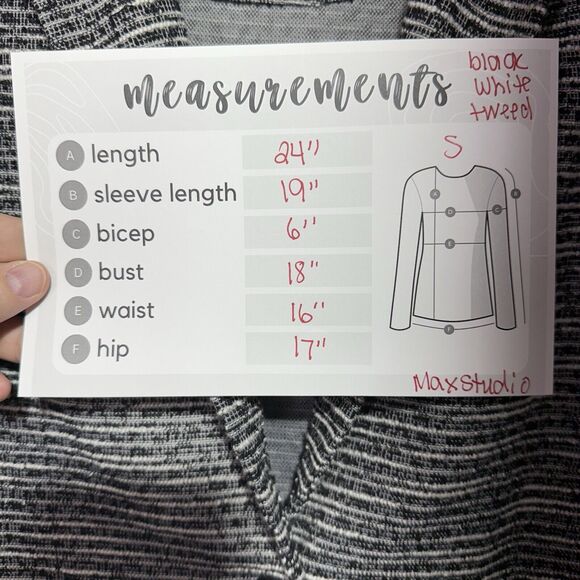 measurements
black
white
tweed
A length 24"
B sleeve length 19"
C bicep 6"
D bust 18"
E waist 16"
F hip 17"
S
A B
D C
E
F
MaxStudio